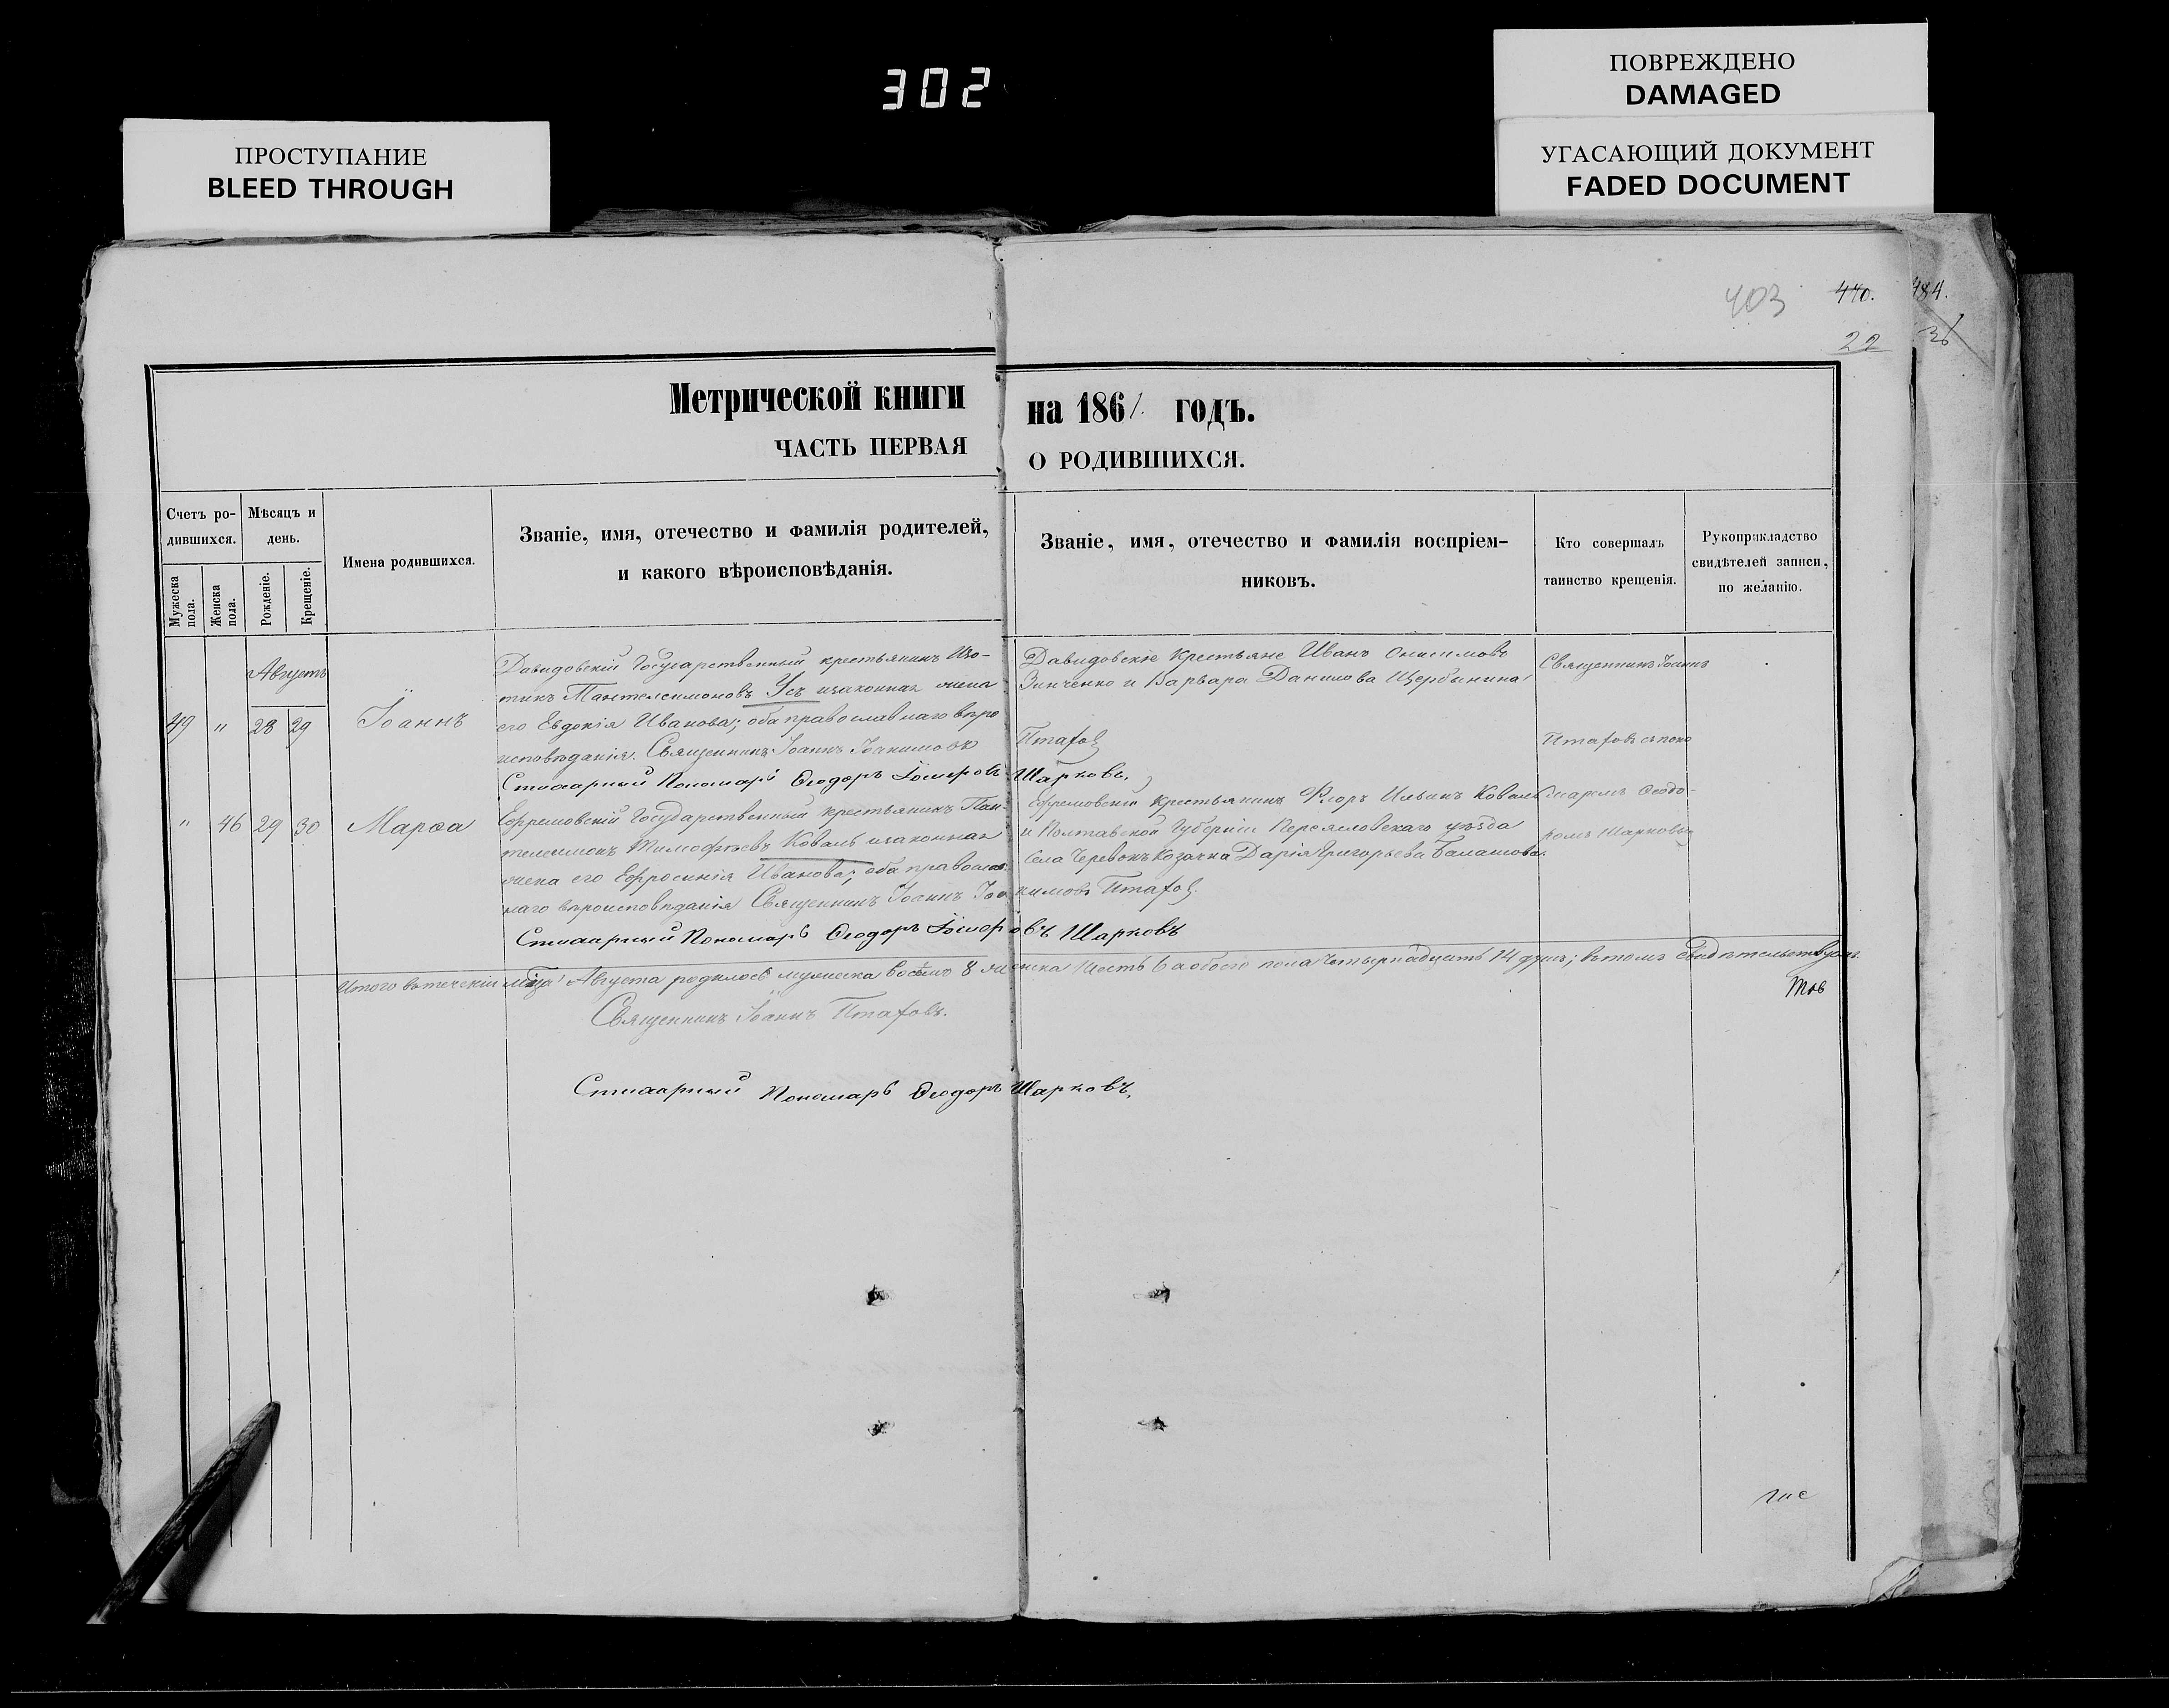 302
ПОВРЕЖДЕНО
DAMAGED
УГАСАЮЩИЙ ДОКУМЕНТ
FADED DOCUMENT
ПРОСТУПАНИЕ
BLEED THROUGH
403 440. 484.
22
Метрической книги на 1861. годъ.
ЧАСТЬ ПЕРВАЯ О РОДИВШИХСЯ.
Счетъ ро-
дившихся.
Мѣсяцъ и
день.
Мужеска
пола.
Женска
пола.
Рожденіе.
Крещеніе.
Имена родившихся.
Званіе, имя, отечество и фамилія родителей,
и какого вѣроисповѣданія.
Званіе, имя, отечество и фамилія воспріем-
никовъ.
Кто совершалъ
таинство крещенія.
Рукоприкладство
свидѣтелей записи,
по желанію.
Августъ
49 " 28 29 Іоаннъ
Давидовскій Государственный крестьянинъ Изо-
тикъ Пантелеимоновъ Усъ и законная жена
его Евдокія Иванова; оба православнаго вѣро
исповѣданія. Священникъ Іоаннъ Іоакимовъ Птаховъ
Стихарный Пономарь Ѳеодоръ Шарковъ.
Давидовскіе крестьяне Иванъ Онисимовъ
Зинченко и Варвара Данилова Щербинина
Священникъ Іоаннъ
Птаховъ съ поно
маремъ Ѳеодо-
ромъ Шарковы
" 46 29 30 Марѳа
Ефремовскій Государственный крестьянинъ Пан-
телеимонъ Тимофѣевъ Коваль и законная
жена его Ефросинія Иванова; оба православ
наго вѣроисповѣданія Священникъ Іоаннъ Іоакимовъ Птаховъ
Стихарный Пономарь Ѳеодоръ Шарковъ
Ефремовскій крестьянинъ Флоръ Ильинъ Коваль
и Полтавской Губерніи Переясловскаго уѣзда
села Черевокъ Козачка Дарія Григорьева Балашова.
Итого въ теченіи мѣсяца Августа родилось мужеска восемь 8 женска шесть 6 а обоего пола четырнадцать 14 душъ; въ томъ свидѣтельствуемъ.
Священникъ Іоаннъ Птаховъ.
Стихарный Пономарь Ѳеодоръ Шарковъ.